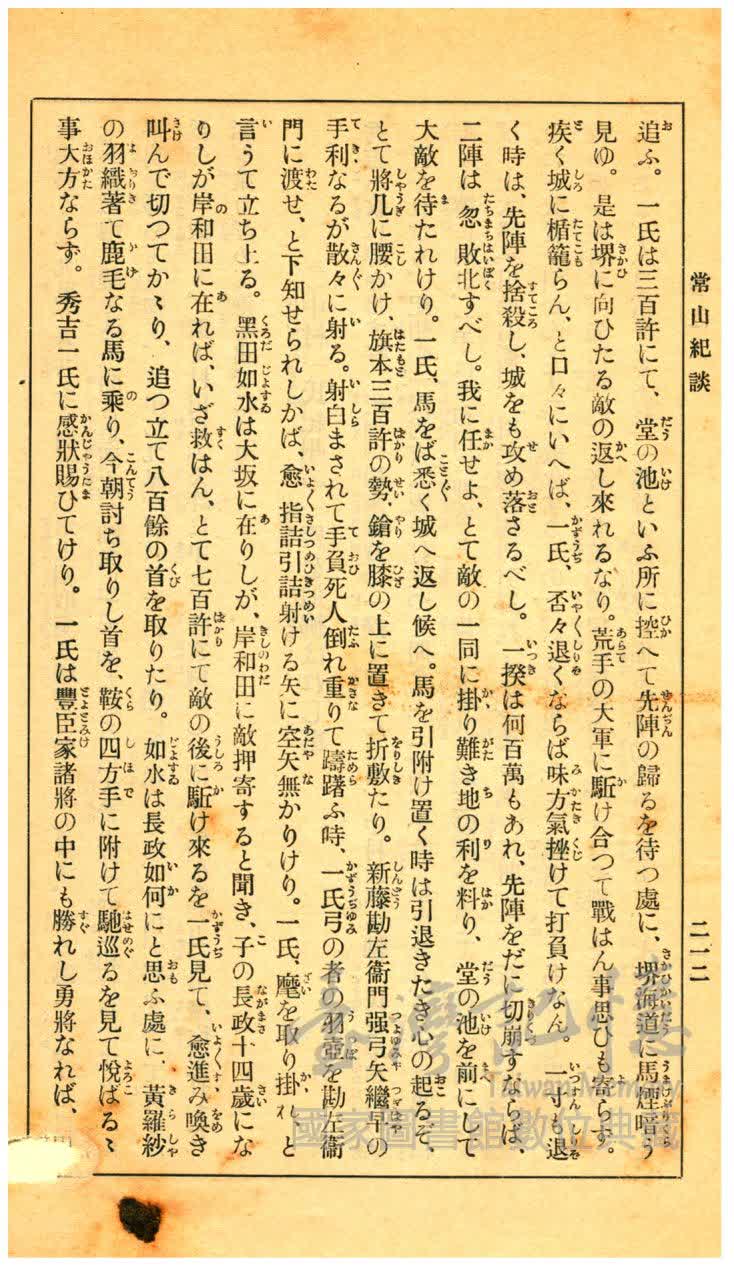 常山紀談
二一二
追ふ。一氏は三百許にて、堂の池といふ所に控へて先陣の歸るを待つ處に、堺海道に馬煙暗う
見ゆ。是は堺に向ひたる敵の返し來れるなり。荒手の大軍に駈け合つて戰はん事思ひも寄らず。
疾く城に楯籠らん、と口々にいへば、一氏、否々退くならば味方氣挫けて打負けなん。一寸も退
く時は、先陣を捨殺し、城をも攻め落さるべし。一揆は何百萬もあれ、先陣をだに切崩すならば、
二陣は忽敗北すべし。我に任せよ、とて敵の一同に掛り難き地の利を料り、堂の池を前にして
大敵を待たれけり。一氏、馬をば悉く城へ返し候へ。馬を引附け置く時は引退きたき心の起るぞ、
とて將几に腰かけ、旗本三百許の勢、鎗を膝の上に置きて折敷たり。新藤勘左衞門强弓矢繼早の
手利なるが散々に射る。射白まされて手負死人倒れ重りて躊躇ふ時、一氏弓の者の羽壺を勘左衞
門に渡せ、と下知せられしかば、愈指詰引詰射ける矢に空矢無かりけり。一氏、麾を取り掛れ、と
言うて立ち上る。黑田如水は大坂に在りしが、岸和田に敵押寄すると聞き、子の長政十四歲にな
りしが岸和田に在れば、いざ救はん、とて七百許にて敵の後に駈け來るを一氏見て、愈進み喚き
叫んで切つてかゝり、追つ立て八百餘の首を取りたり。如水は長政如何にと思ふ處に、黃羅紗
の羽織著て鹿毛なる馬に乘り、今朝討ち取りし首を、鞍の四方手に附けて馳巡るを見て悅ばるゝ
事大方ならず。秀吉一氏に感狀賜ひてけり。一氏は豐臣家諸將の中にも勝れし勇將なれば、
臺灣記憶
Taiwan Memory
國家圖書館數位典藏